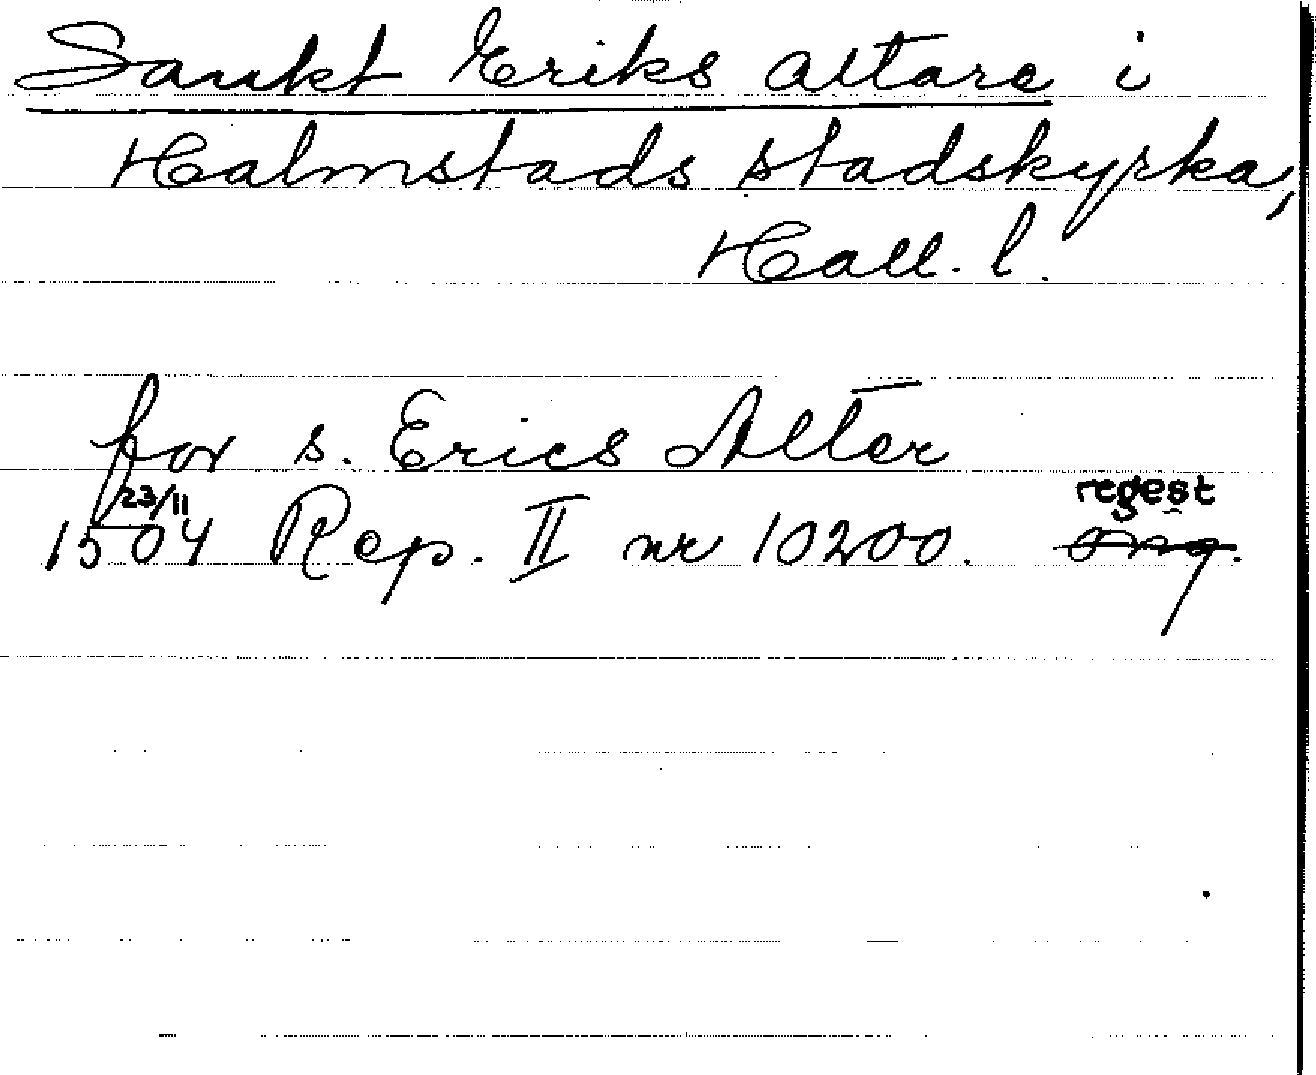 Sankt Eriks altare i
Halmstads stadskyrka,
Hall. l.
for s. Erics Alter
23/11 regest
1504 Rep. II nr 10200. orig.